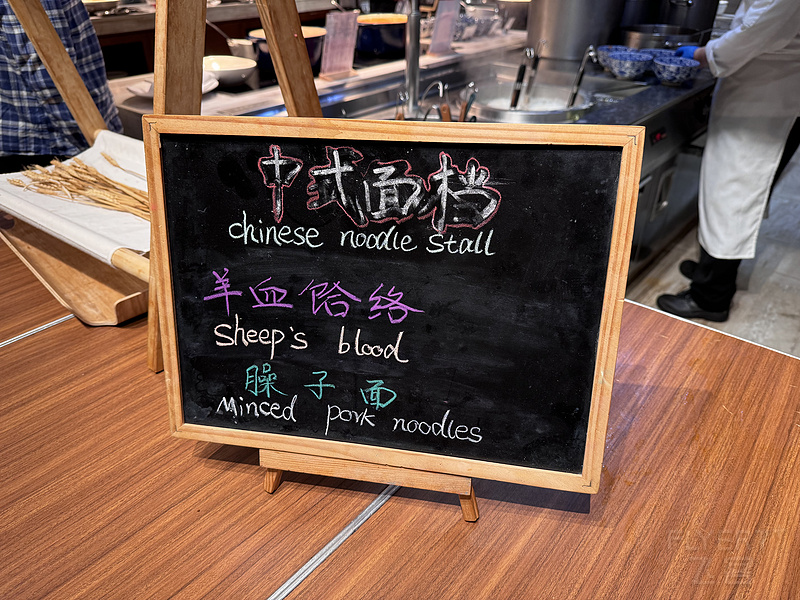 中式面档
chinese noodle stall
羊血饸络
Sheep's blood
臊子面
Minced pork noodles
FLYERT